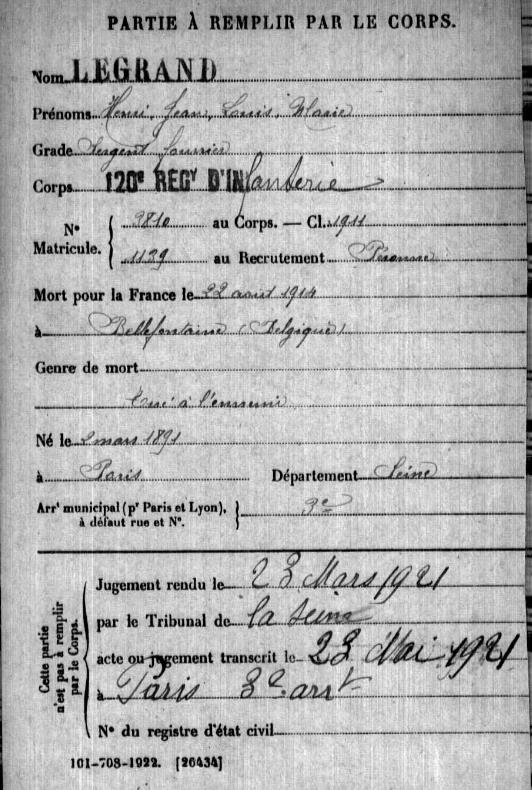 PARTIE À REMPLIR PAR LE CORPS.
Nom LEGRAND
Prénoms Henri, Jean, Louis, Marie
Grade Sergent fourrier
Corps 120e REGt D'Infanterie
N° Matricule. { 9810 au Corps. — Cl. 1911
1129 au Recrutement Péronne
Mort pour la France le 22 août 1914
à Bellefontaine (Belgique)
Genre de mort
Tué à l'ennemi
Né le 2 mars 1891
à Paris Département Seine
Arrt municipal (pr Paris et Lyon), à défaut rue et N°. } 3e
Cette partie n'est pas à remplir par le Corps.
Jugement rendu le 23 Mars 1921
par le Tribunal de la Seine
acte ou jugement transcrit le 23 Mai 1921
à Paris 3e arrt
N° du registre d'état civil
101-708-1922. [26434]